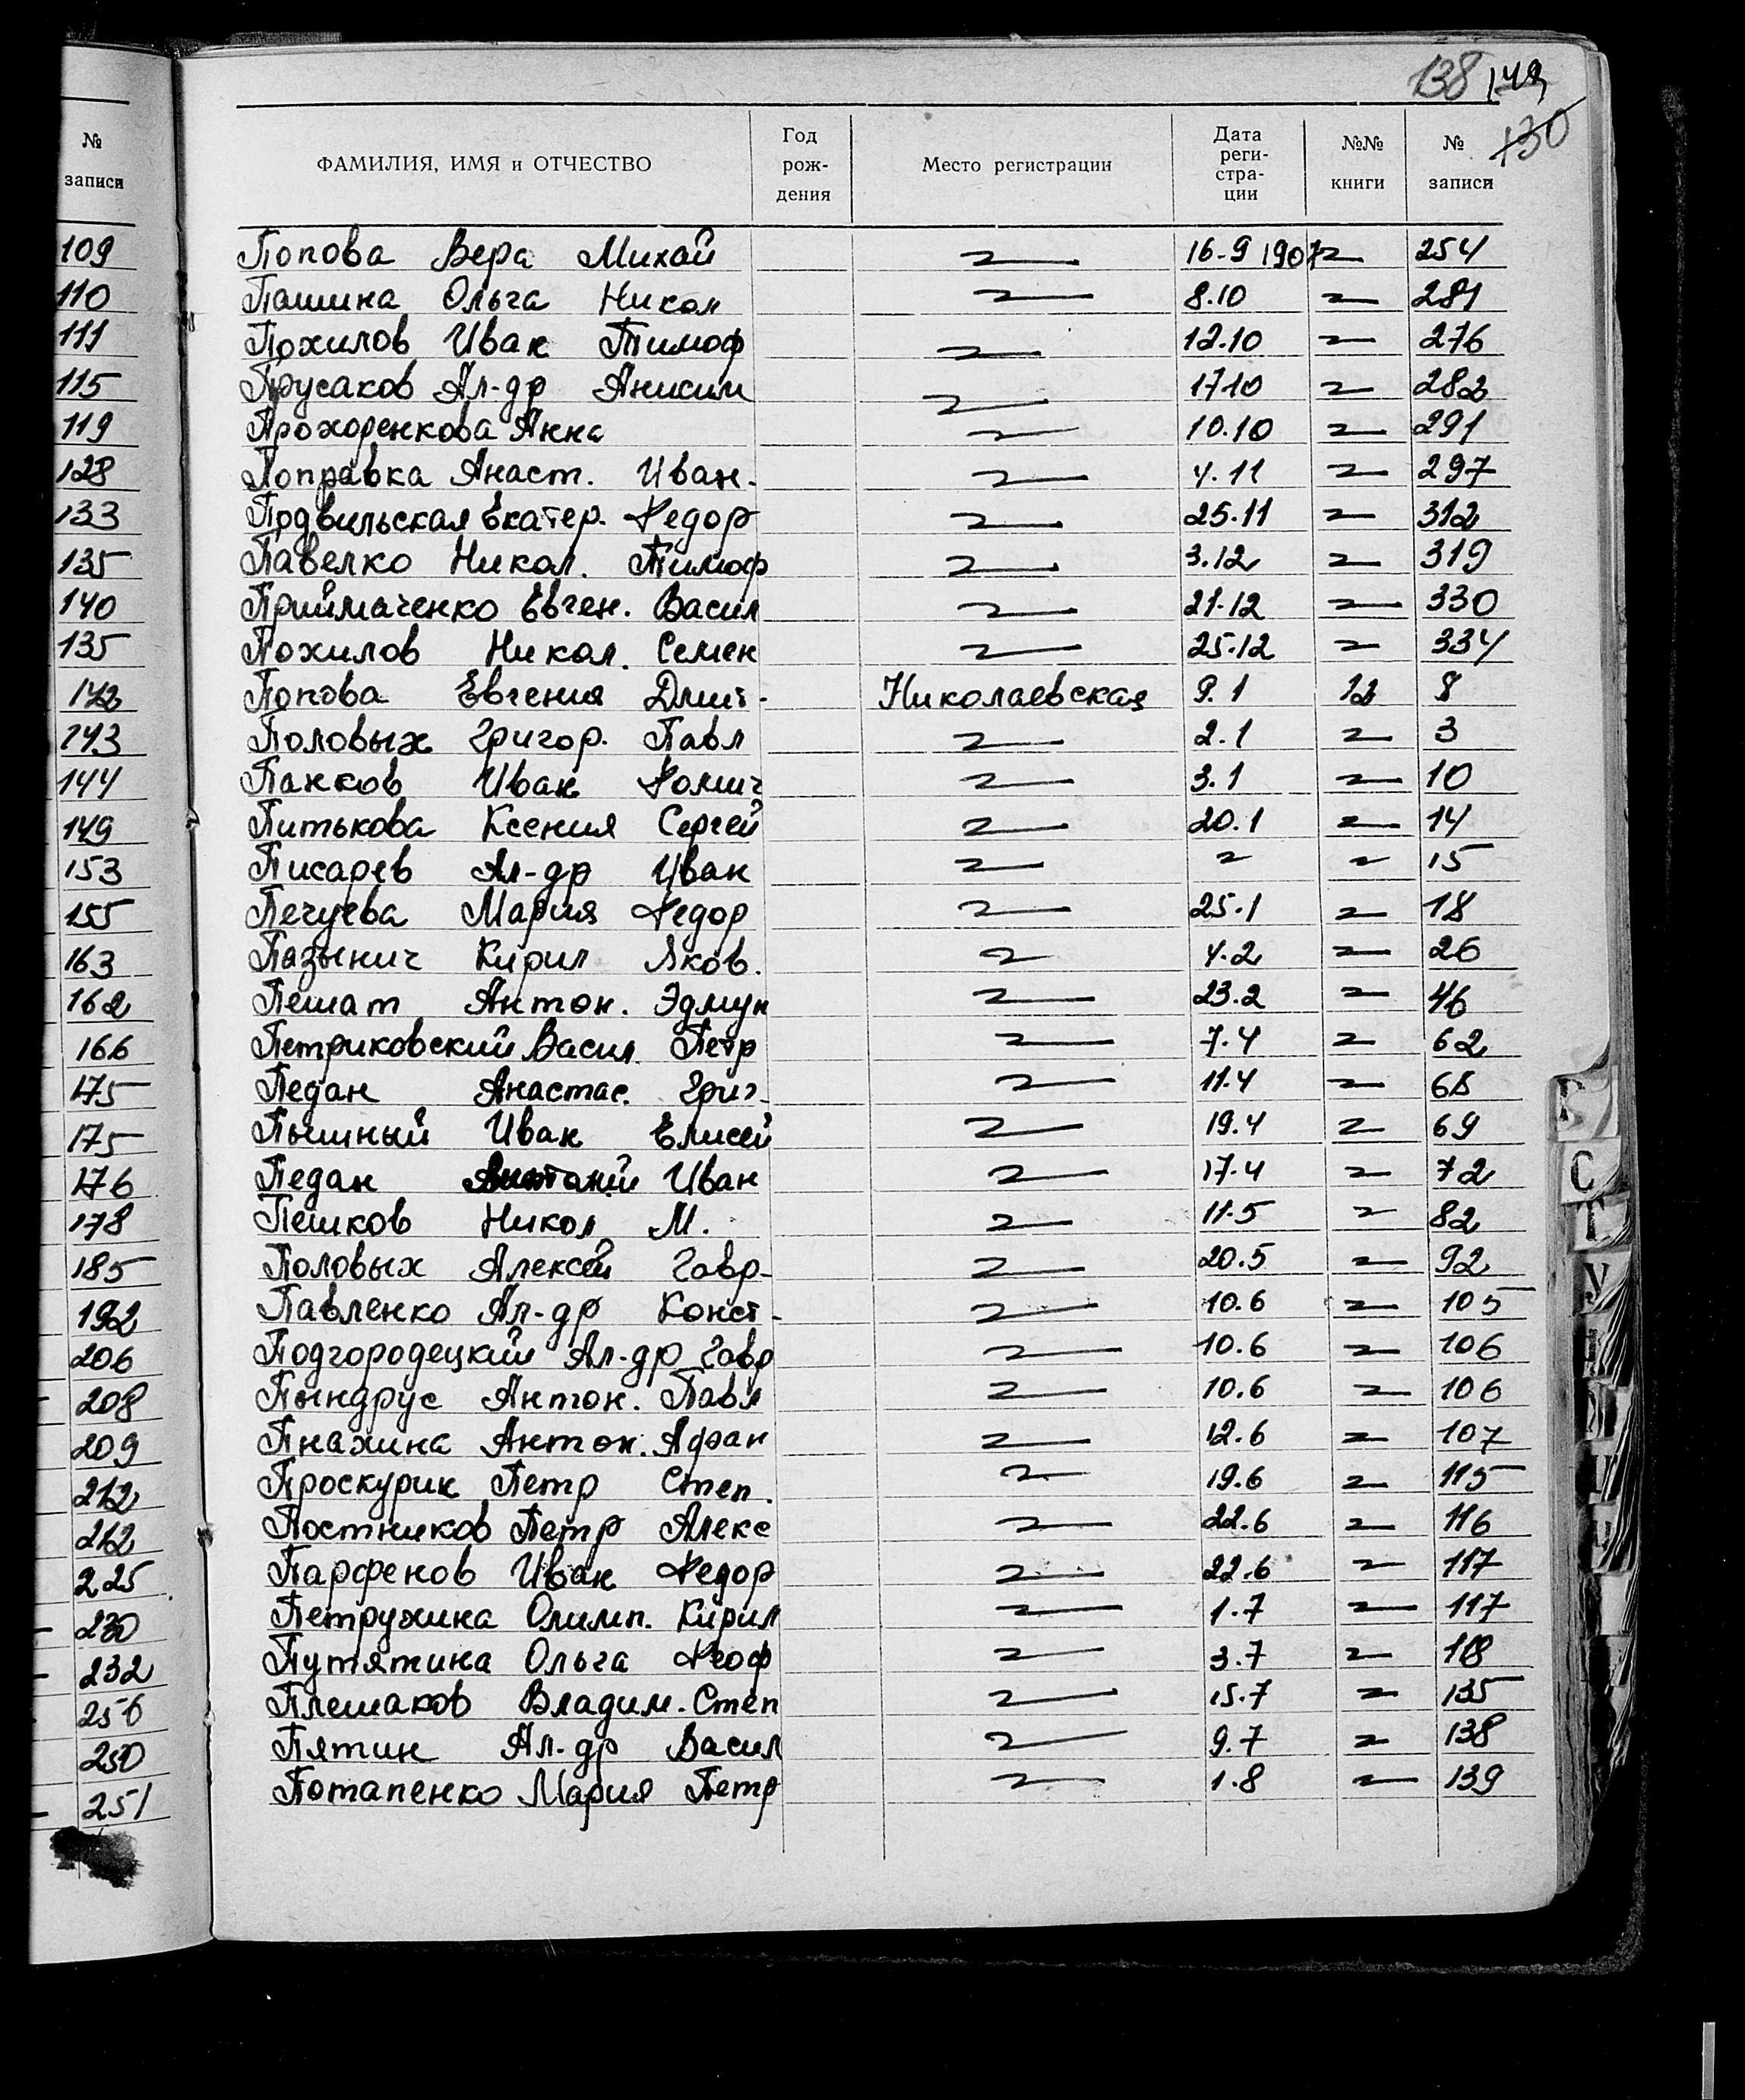 138 149
130
№ записи
ФАМИЛИЯ, ИМЯ и ОТЧЕСТВО Год рождения Место регистрации Дата регистрации №№ книги № записи
109 Попова Вера Михай 〃 16-9 1907 〃 254
110 Пашина Ольга Никол 〃 8.10 〃 281
111 Похилов Иван Тимоф 〃 12.10 〃 276
115 Прусаков Ал-др Анисим 〃 17.10 〃 282
119 Прохоренкова Анна 〃 10.10 〃 291
128 Поправка Анаст. Иван. 〃 4.11 〃 297
133 Подвильская Екатер. Федор 〃 25.11 〃 312
135 Павелко Никол. Тимоф 〃 3.12 〃 319
140 Прийматенко Евген. Васил 〃 21.12 〃 330
135 Похилов Никол. Семен 〃 25.12 〃 334
142 Попова Евгения Дмит. Николаевская 9.1 12 8
143 Половых Григор. Павл 〃 2.1 〃 3
144 Панков Иван Фомич 〃 3.1 〃 10
149 Питькова Ксения Сергей 〃 20.1 〃 14
153 Писарев Ал-др Иван 〃 〃 〃 15
155 Печуева Мария Федор 〃 25.1 〃 18
163 Пазынич Кирил Яков. 〃 4.2 〃 26
162 Пешат Антон. Эдмун 〃 23.2 〃 46
166 Петриковский Васил. Петр 〃 7.4 〃 62
175 Педан Анастас. Григ. 〃 11.4 〃 68
175 Пышный Иван Елисей 〃 19.4 〃 69
176 Педан Иван 〃 17.4 〃 72
178 Пешков Никол М. 〃 11.5 〃 82
185 Половых Алексей Гавр. 〃 20.5 〃 92
192 Павленко Ал-др Конст. 〃 10.6 〃 105
206 Подгородецкий Ал-др Гавр 〃 10.6 〃 106
208 Пындрус Антон. Павл 〃 10.6 〃 106
209 Пнахина Антон. Афан 〃 12.6 〃 107
212 Проскурик Петр Степ. 〃 19.6 〃 115
212 Постников Петр Алекс 〃 22.6 〃 116
225 Парфенов Иван Федор 〃 22.6 〃 117
230 Петружина Олимп. Кирил 〃 1.7 〃 117
232 Путятина Ольга Феоф 〃 3.7 〃 118
256 Плешаков Владим. Степ 〃 15.7 〃 135
250 Пятин Ал-др Васил 〃 9.7 〃 138
251 Потапенко Мария Петр 〃 1.8 〃 139
С
Т
У